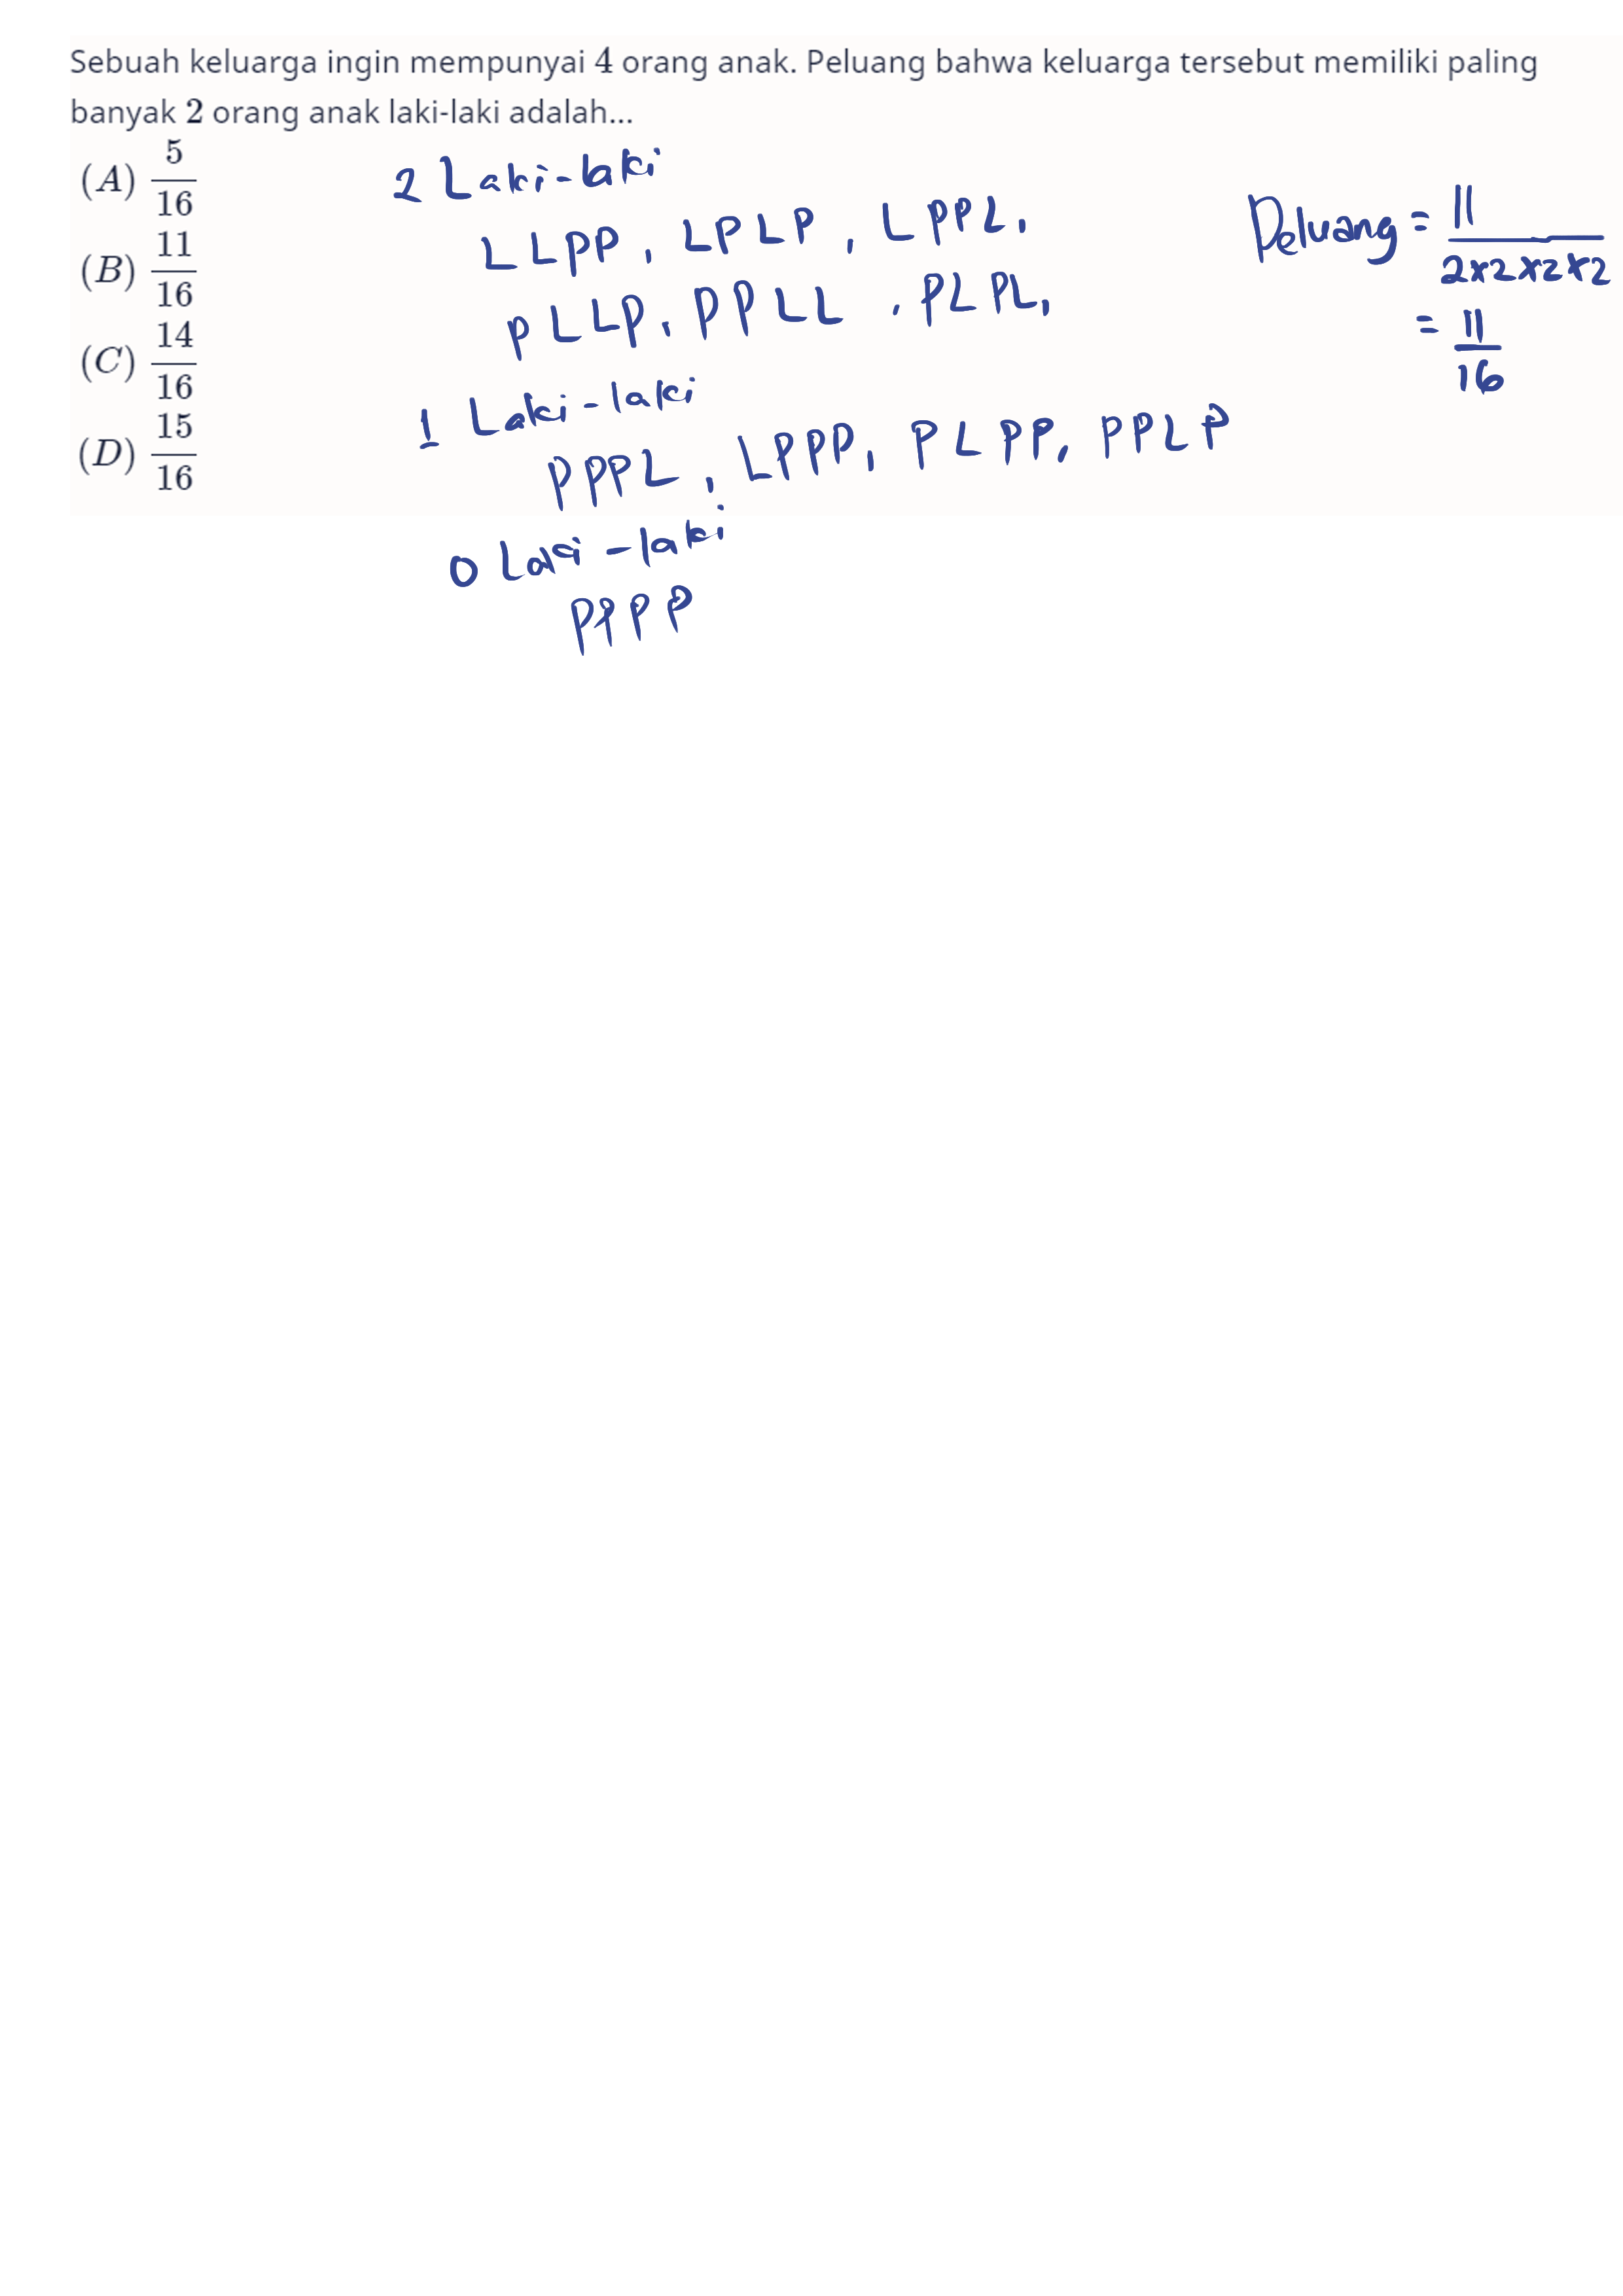 Sebuah keluarga ingin mempunyai 4 orang anak. Peluang bahwa keluarga tersebut memiliki paling
banyak 2 orang anak laki-laki adalah...
(A) 5/16
(B) 11/16
(C) 14/16
(D) 15/16
2 Laki-laki
LLPP, LPLP, LPPL,
PLLP, PPLL, PLPL,
1 Laki-laki
PPPL, LPPP, PLPP, PPLP
0 Laki-laki
PPPP
Peluang = 11/2x2x2x2
= 11/16